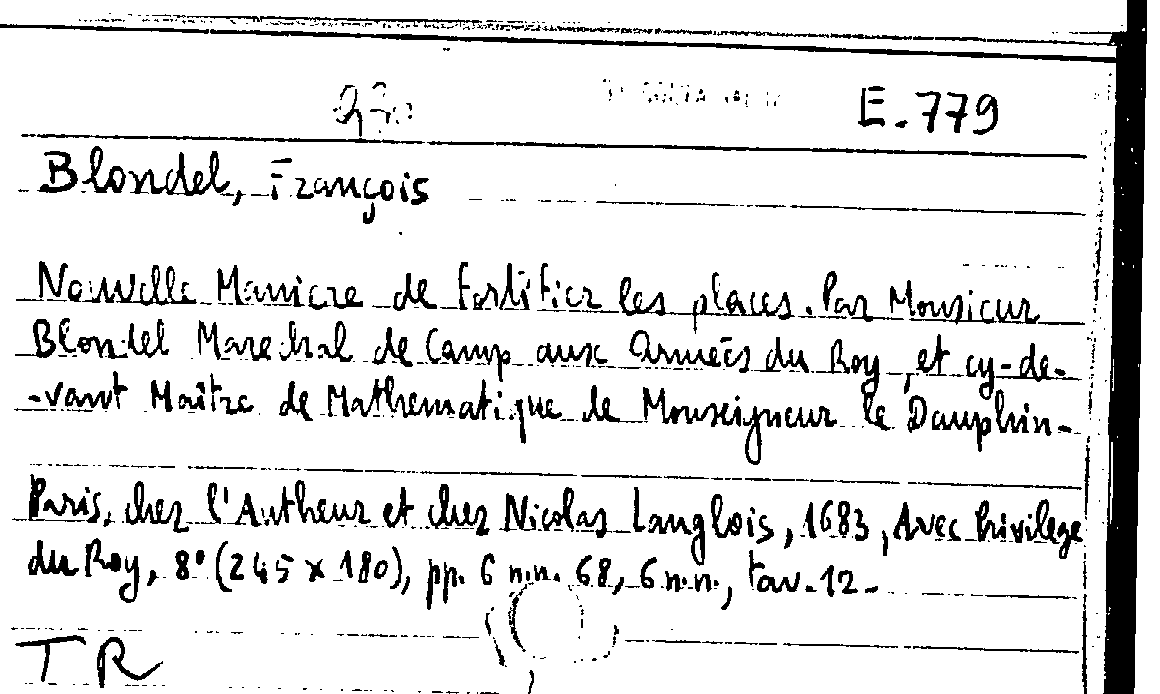 E.779
Blondel, François
Nouvelle Maniere de fortifier les places. Par Monsieur
Blondel Marechal de Camp aux Armeés du Roy, et cy-de-
-vant Maître de Mathematique de Monseigneur le Dauphin-
Paris, chez l'Autheur et chez Nicolas Langlois, 1683, Avec Privilege
du Roy, 8° (245 x 180), pp. 6 n.n. 68, 6 n.n., tav. 12-
TR